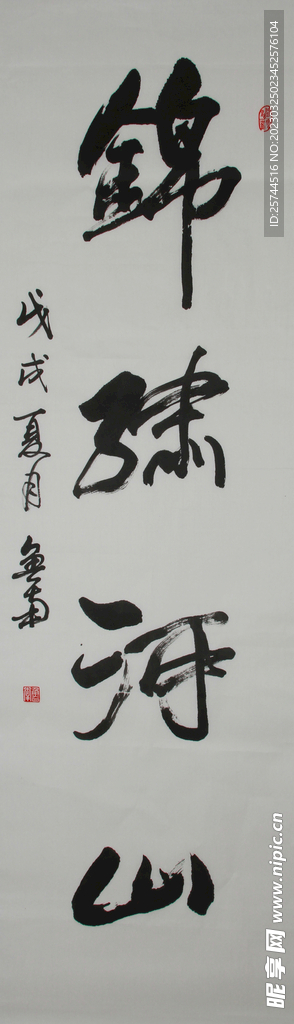 錦繡河山
戊戌夏月 鱼南
ID:25744516 NO:20230325023452576104
昵享网 www.nipic.cn